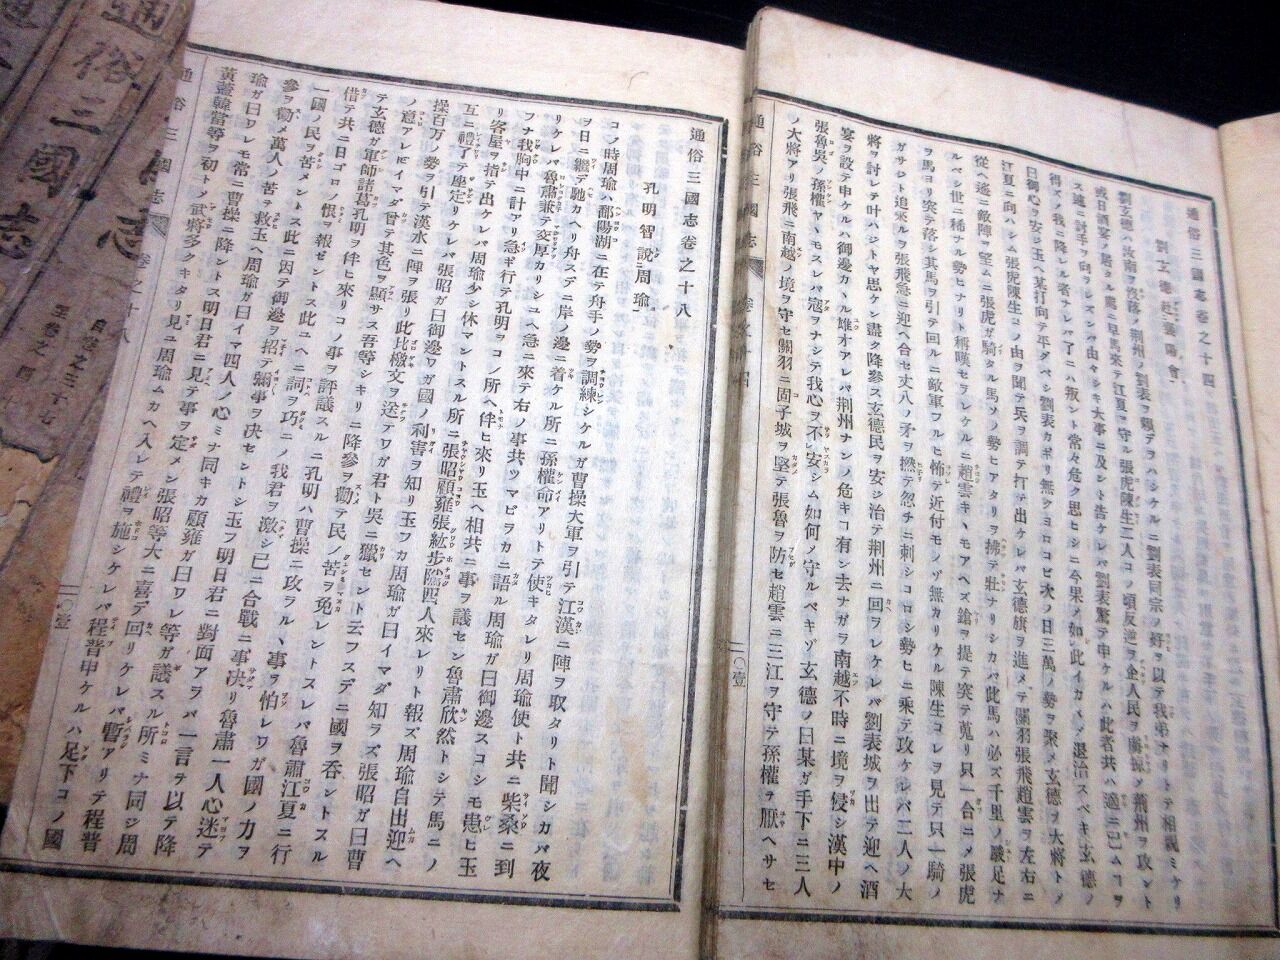 通俗三國志卷之十四
劉玄德赴襄陽會
劉玄德ハ汝南ヲ沒落シ荊州ノ劉表ヲ賴テヲハシケルニ劉表同宗ノ好ヲ以テ我弟ナリトテ相親ミケリ
或日酒宴ノ居タル處ニ早馬來テ江夏ヲ守ル張虎陳生二人コノ頃反逆ヲ企人民ヲ 荊州ヲ攻ント
ス速ニ討手ヲ向ラレズンバ由々シキ大事ニ及ント告ケレバ劉表驚テ申ケルハ此者共ハ適ニ己ムコヲ
得ズノ我ニ降レル者ナレバ了ニハ叛ント常々危ク思ヒシニ今果ノ如シ此イカヾメ退治スベキ玄德ノ
曰御心ヲ安ジ玉ヘ某打向テ平グベシ劉表カギリ無クヨロコビ次ノ日三萬ノ勢ヲ聚メ玄德ヲ大將トノ
江夏ニ向ハシム張虎陳生コノ由ヲ聞テ兵ヲ調テ打テ出ケレバ玄德旗ヲ進メテ關羽張飛趙雲ヲ左右ニ
從ヘ遙ニ敵陣ヲ望ムニ張虎ガ騎タル馬ノ勢ヒアタリヲ拂テ壯ナリシカバ此馬ハ必ズ千里ノ嚴足ナ
ルベシ世ニ稀ナル勢ヒナリト稱嘆セラレケルニ趙雲キヽモアヘズ鎗ヲ提テ突テ蒐リ只一合ニメ張虎
ヲ馬ヨリ突テ落シ其馬ヲ引テ回ルニ敵軍フルヒ怖テ近付モノゾ無カリケル陳生コレヲ見テ只一騎ノ
ガサジト追來ルヲ張飛急ニ迎ヘ合セ丈八ノ矛ヲ撚テ忽チニ刺シコロシ勢ヒニ乘テ攻ケレバ二人ノ大
將ヲ討レテ叶ハジトヤ思ケン盡ク降參ス玄德民ヲ安ジ治テ荊州ニ回ヲレケレバ劉表城ヲ出テ迎ヘ酒
宴ヲ設テ申ケルハ御邊カヽル雄才アレバ荊州ナンノ危キコ有ン去ナガヲ南越不時ニ境ヲ侵シ漢中ノ
張魯吳ノ孫權ヤヽモスレバ寇ヲナシテ我心ヲ不レ安シム如何ノ守ルベキゾ玄德ノ曰某ガ手下ニ三人
ノ大將アリ張飛ニ南越ノ境ヲ守セ關羽ニ固子城ヲ堅テ張魯ヲ防セ趙雲ニ三江ヲ守テ孫權ヲ厭ヘサセ
通俗三國志 卷之十四 一〇壹
通俗三國志卷之十八
孔明智說周瑜
コノ時周瑜ハ鄱陽湖ニ在テ舟手ノ勢ヲ調練シケルガ曹操大軍ヲ引テ江漢ニ陣ヲ取タリト聞シカバ夜
ヲ日ニ繼デ馳カヘリ舟スデニ岸ノ邊ニ着ケル所ニ孫權命アリトテ使キタレリ周瑜使ト共ニ柴桑ニ到
リケレバ魯肅兼テ交厚カリシユヘ急ニ來テ右ノ事共ツマビヲカニ語ル周瑜ガ曰御邊スコシモ患ヒ玉
フナ我胸中ニ計アリ急ギ行テ孔明ヲコノ所ヘ伴ヒ來リ玉ヘ相共ニ事ヲ議セン魯肅欣然トシテ馬ニノ
リ客屋ヲ指テ出ケレバ周瑜少シ休マントスル所ニ張昭顧雍張紘步隲四人來レリト報ズ周瑜自出迎ヘ
互ニ禮了テ座定リケレバ張昭ガ曰御邊ワガ國ノ利害ヲ知リ玉フカ周瑜ガ曰イマダ知ラズ張昭ガ曰曹
操百万ノ勢ヲ引テ漢水ニ陣ヲ張リ此比檄文ヲ送テワガ君ト吳ニ獵セント云フスデニ國ヲ吞ントスル
ノ意アレ𪜈イマダ曾テ其色ヲ顯サス吾等シキリニ降參ヲ勸テ民ノ苦ヲ免レントスレバ魯肅江夏ニ行
テ玄德ガ軍師諸葛孔明ヲ伴ヒ來リコノ事ヲ評議スルニ孔明ハ曹操ニ攻ヲルヽ事ヲ怕レワガ國ノ力ヲ
借テ共ニ日ゴロノ恨ヲ報ゼントス此ユヘニ詞ヲ巧ニノ我君ヲ激シ已ニ合戰ニ事決リ魯肅一人心迷テ
一國ノ民ヲ苦メントス此ニ因テ御邊ヲ招テ彌事ヲ決セントシ玉フ明日君ニ對面アラバ一言ヲ以テ降
參ヲ勸メ萬人ノ苦ヲ救玉ヘ周瑜ガ曰イマ四人ノ心ミナ同キカ顧雍ガ曰ワレ等ガ議スル所ミナ同シ周
瑜ガ曰ワレモ常ニ曹操ニ降ントス明日君ニ見テ事ヲ定メン張昭等大ニ喜デ回リケレバ暫アリテ程普
黃蓋韓當等ヲ初トノ武將多クキタリ見ユ周瑜ムカヘ入レテ禮ヲ施シケレバ程普申ケルハ足下コノ國
通俗三國志 卷之十八 一〇壹
通俗三國志
自卷之三十七
至卷之四